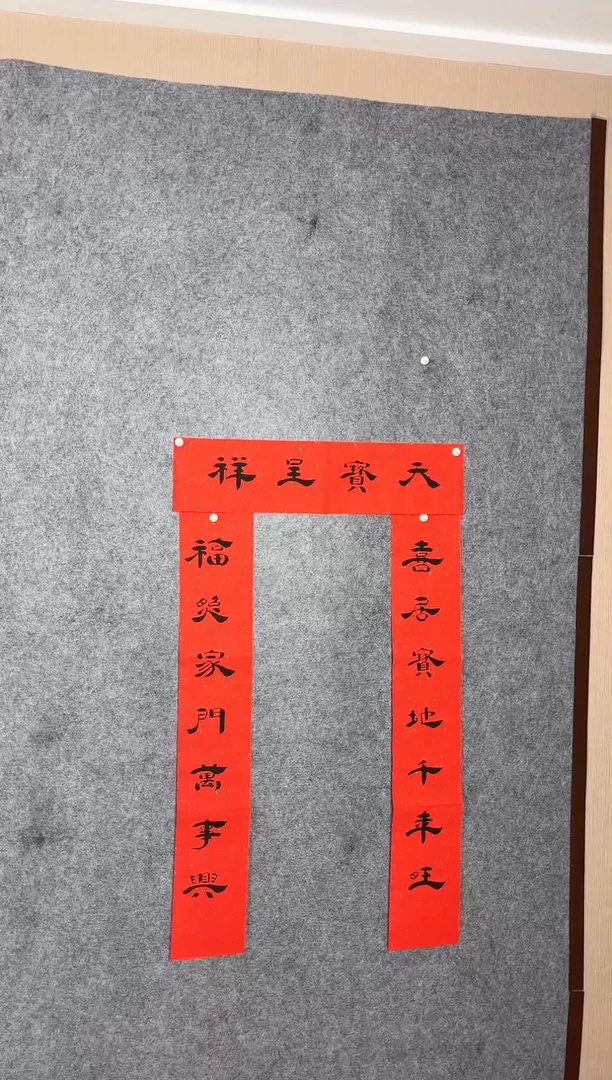 天寶呈祥
喜居寶地千年旺
福照家門萬事興